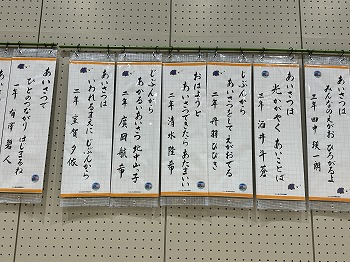 あいさつは
みんなのえがお ひろがるよ
三年 田中 瑛一朗
あいさつは
光かがやく あいことば
三年 酒井 年
じぶんから
あいさつをして えがおでる
三年 丹羽 ひびき
おはようと
あいさつできたら あたたまい
三年 清水 隆希
じぶんから
あかるいあいさつ 北中山っ子
三年 廣岡 航希
あいさつは
いわれるまえに じぶんから
三年 宝賀 夕依
あいさつで
ひとのつながり はじまるね
二年 碧人